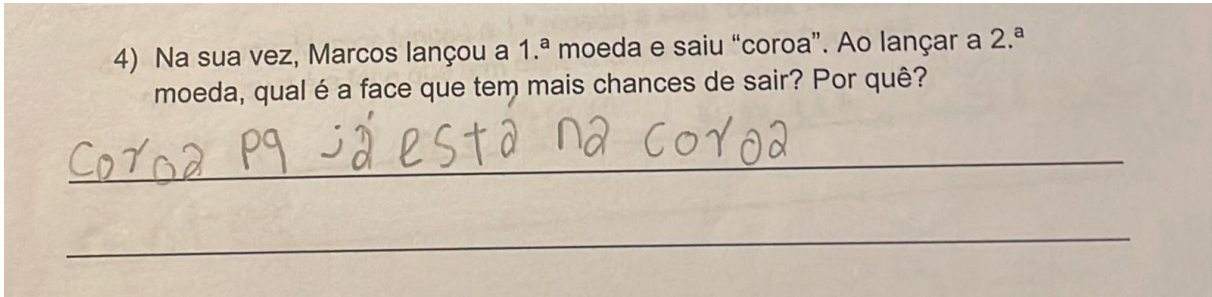 4) Na sua vez, Marcos lançou a 1.ª moeda e saiu “coroa”. Ao lançar a 2.ª
moeda, qual é a face que tem mais chances de sair? Por quê?
Coroa pq já está na coroa